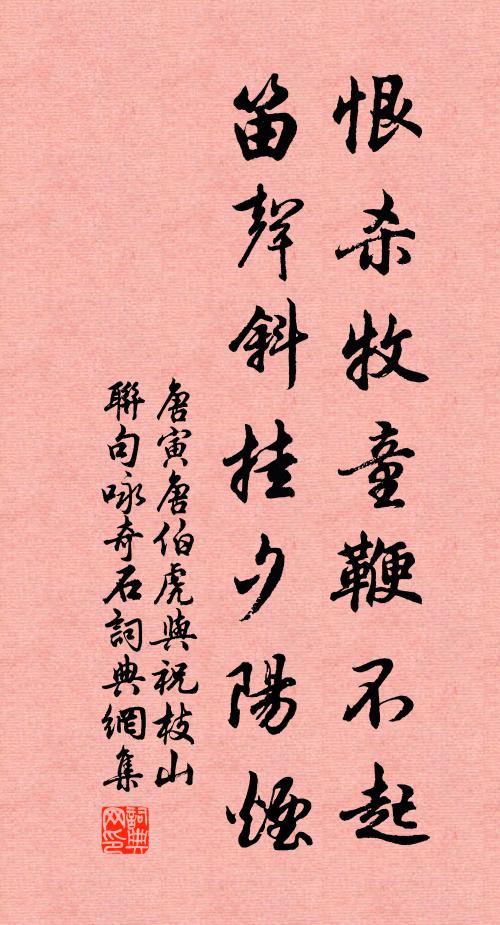 恨杀牧童鞭不起
笛聲斜挂夕陽煙
唐寅唐伯虎與祝枝山
聯句咏奇石詞典網集
詞典网印